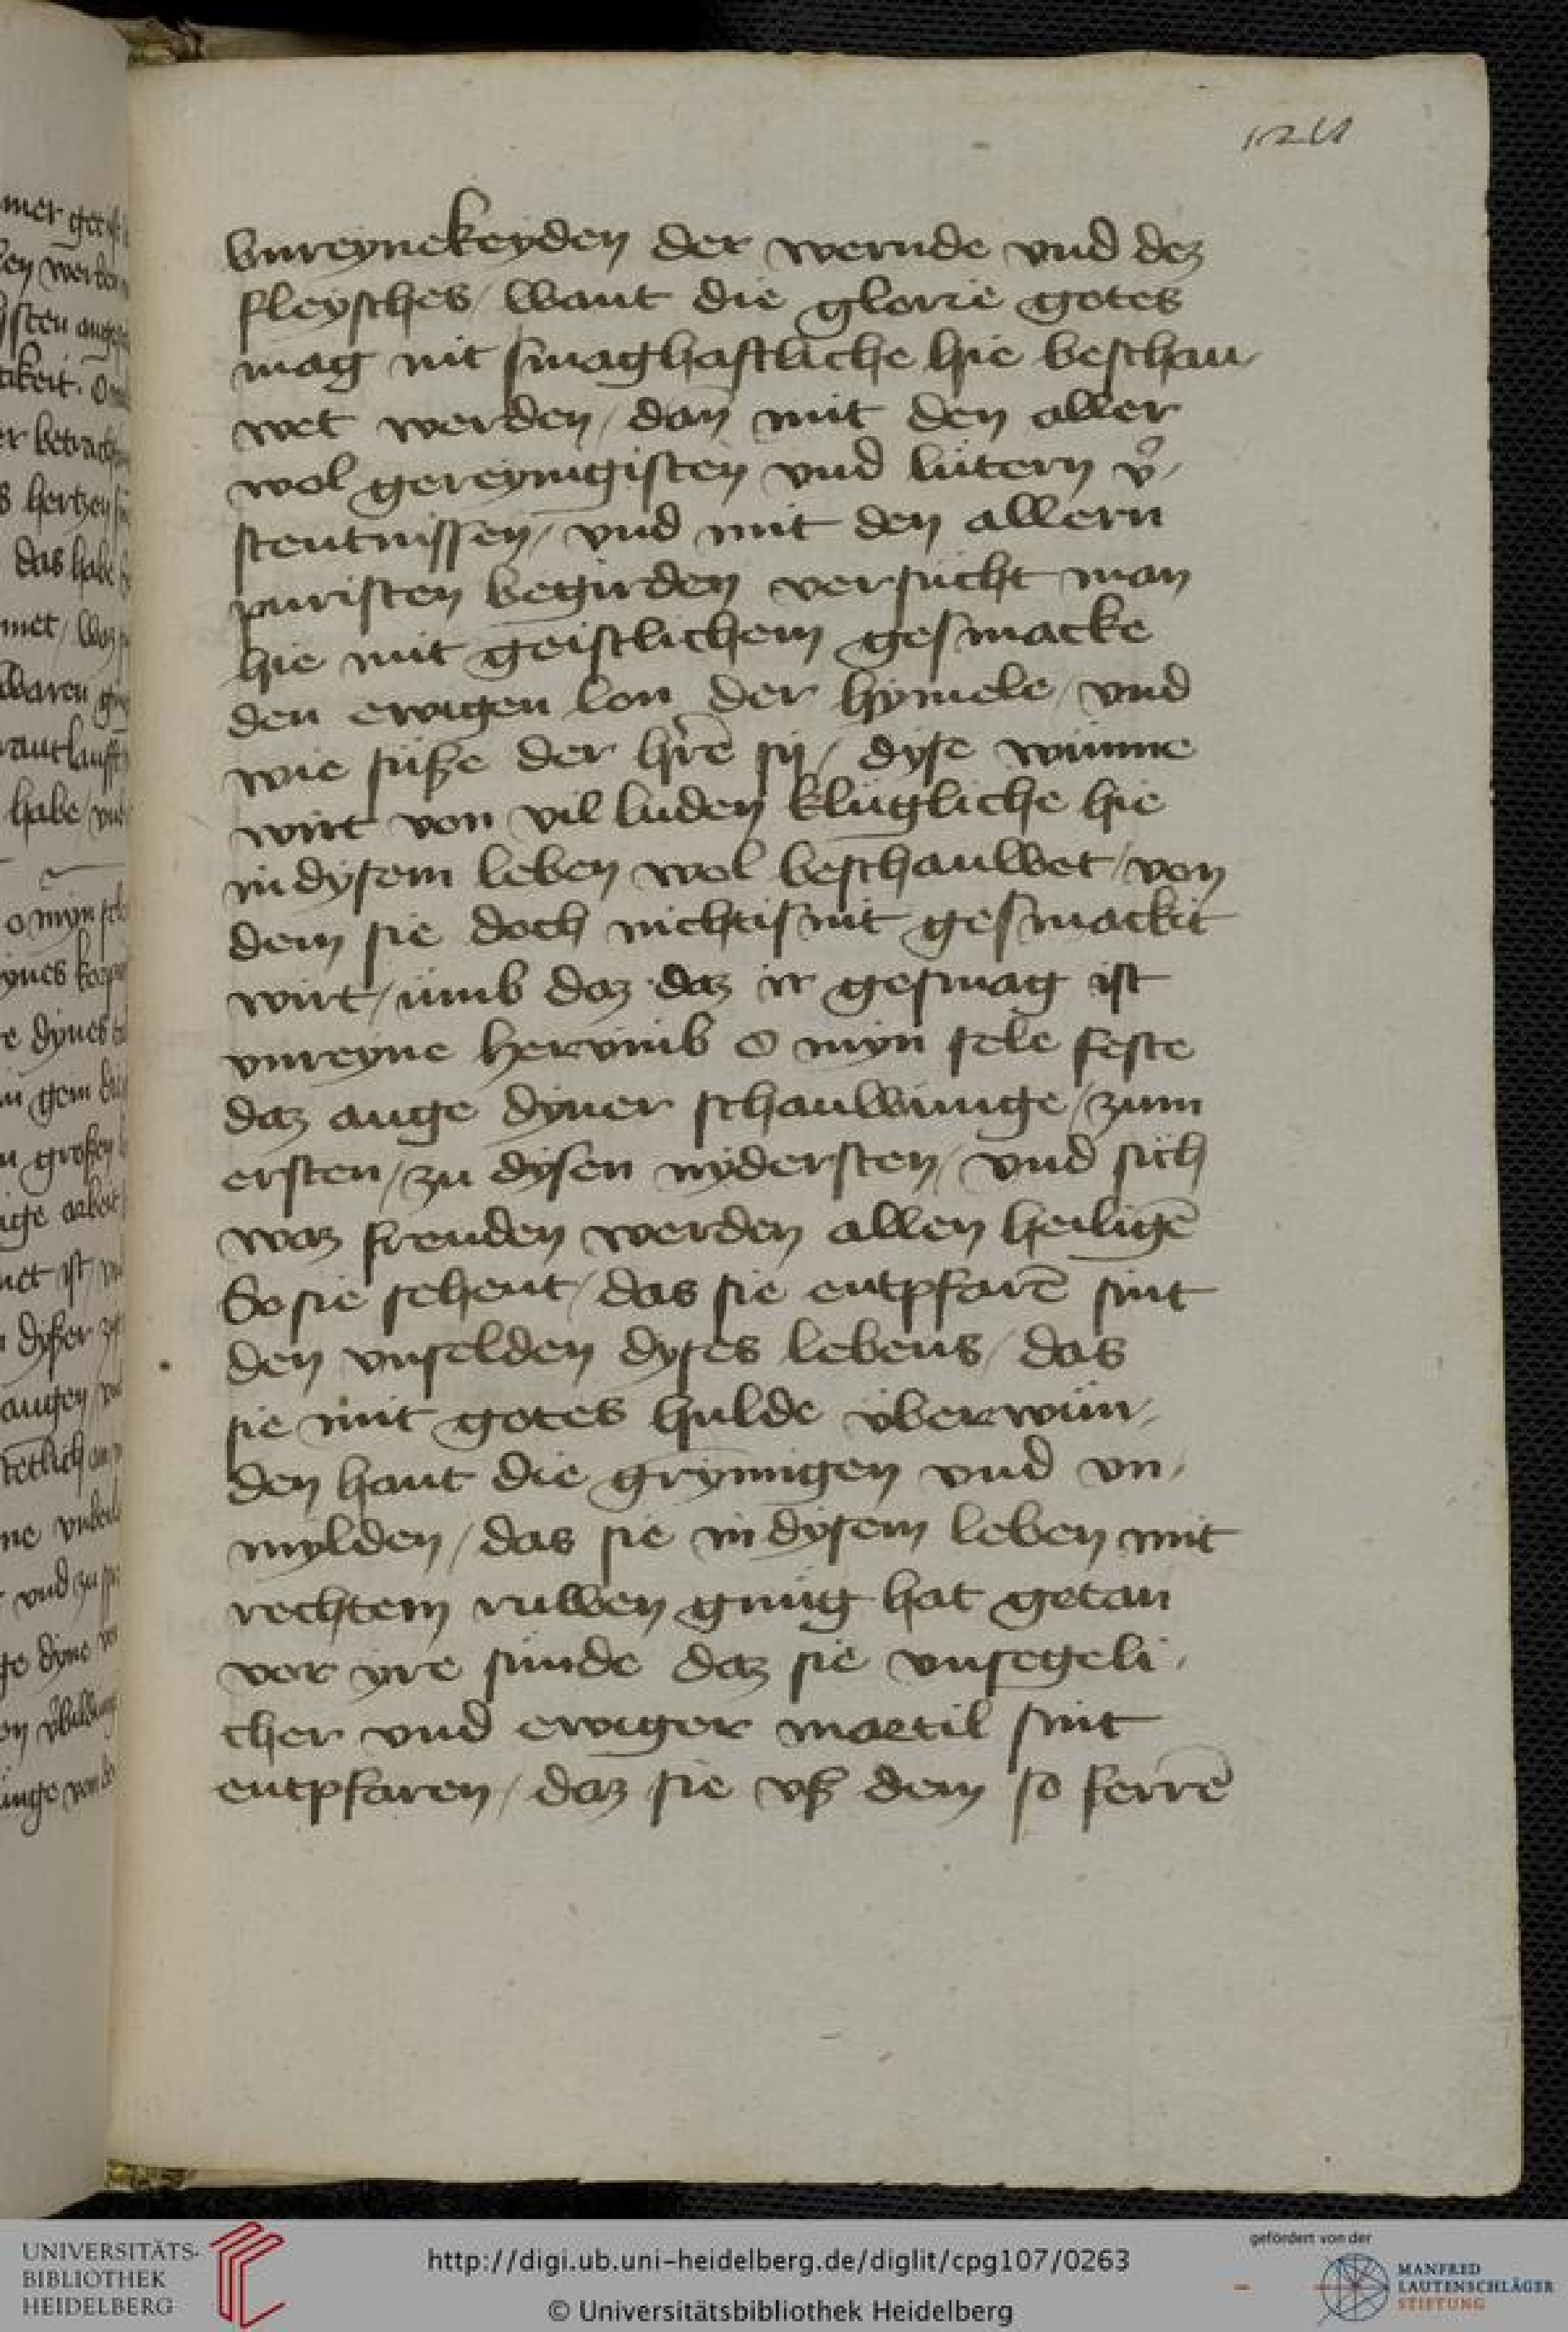 124
vnreynekeyden der wernde vnd dez
fleysches / want die glorie gotes
mag nit smaghaftliche hie beschau-
wet werden / dan̄ mit den aller
wol gereynigisten vnd lütern v̾-
stentnissen / vnd mit den allern
puristen begirden versücht man
hie mit geistlichem gesmacke
den ewigen lon der hymele / vnd
wie süße der hr̄e sij / dyse wünne
wirt von vil luden klügliche hie
in dysem leben wol beschauwet / von
dem sie doch nichtisnit gesmackit
wirt / ümb daz daz ir gesmag ist
vnreyne her vmb o myn sele feste
daz auge dyner schauwünge / zum
ersten / zu dysen nydersten / vnd sich
waz freuden werden allen heiligē
So sie sehent / das sie entpfarē sint
den vnselden dyses lebens / das
sie mit gotes hulde überwün-
den hant die grymigen vnd vn-
mylden / das sie in dysem leben mit
rechtem ruwen gnüg hat getan
vor yre sünde daz sie vnsegeli-
cher vnd ewiger martil sint
entpfaren / daz sie vß dem so ferrē
UNIVERSITÄTS-
BIBLIOTHEK
HEIDELBERG
http://digi.ub.uni-heidelberg.de/diglit/cpg107/0263
© Universitätsbibliothek Heidelberg
gefördert von der
MANFRED
LAUTENSCHLÄGER
STIFTUNG